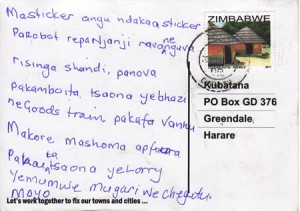 Masticker angu ndakaasticker
Parobot repaNjanji ne
risinga shandi, panova
pakamboita tsaona yebhazi
neGoods train pakafa vanhu
Makore mashoma apfuura
Pakaita tsaona yeLorry
Yemumwe mugari we
Moyo
Let's work together to fix our towns and cities ...
ZIMBABWE
Kubatana
PO Box GD 376
Greendale
Harare